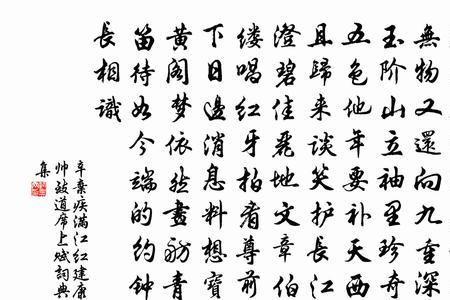 無物又還向九重深
玉階山立袖里珍奇
五色他年要补天西
且歸来談笑护長江
澄碧佳麗地文章伯
缕唱红牙拍看尊前
下日邊消息料想寶
黄阁梦依然畫舫青
笛待如今端的约钟
長相識
辛棄疾滿江红建康
帅致道席上赋詞典
集